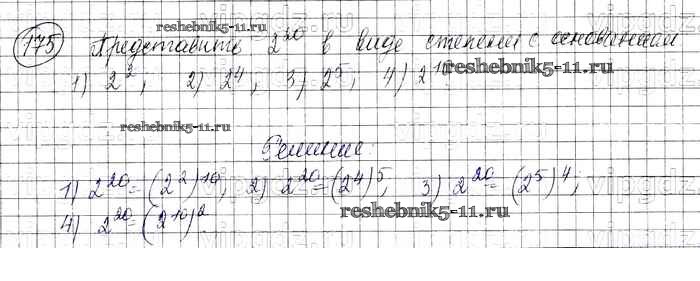 reshebnik5-11.ru
175 Представить 2^20 в виде степени с основанием
1) 2^2, 2) 2^4, 3) 2^5, 4) 2^10.
reshebnik5-11.ru
reshebnik5-11.ru
Решение
1) 2^20=(2^2)^10; 2) 2^20=(2^4)^5, 3) 2^20=(2^5)^4;
reshebnik5-11.ru
4) 2^20=(2^10)^2.